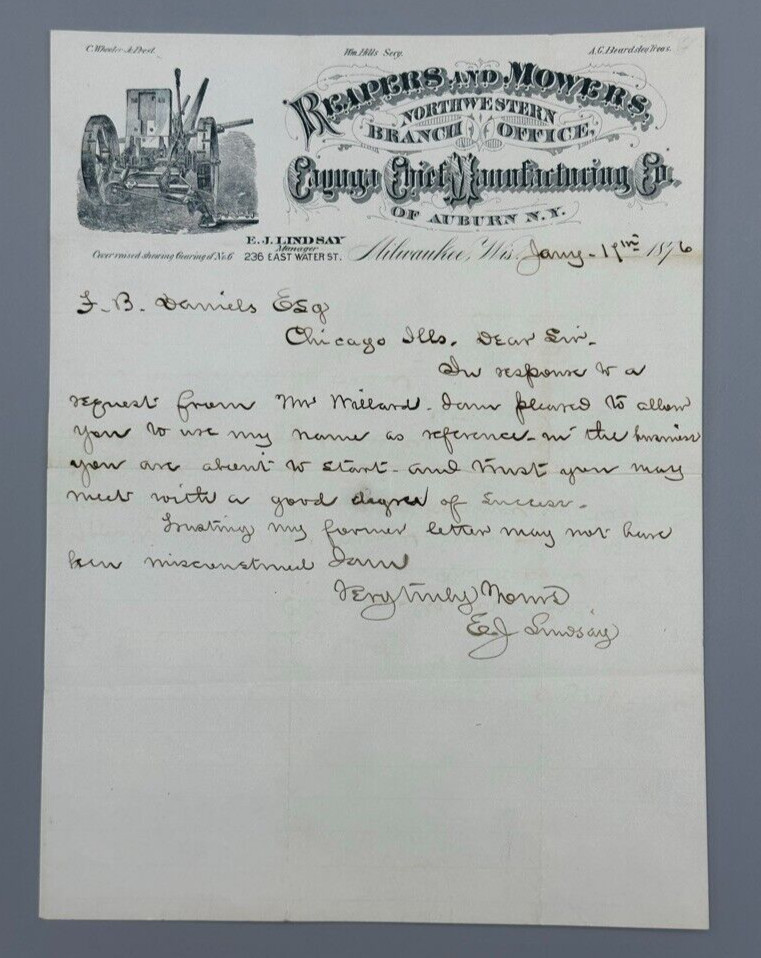 C. Wheeler Jr. Prest.
Wm. Hills Secy.
A. G. Beardsley Treas.
REAPERS AND MOWERS,
NORTHWESTERN
BRANCH OFFICE,
Cayuga Chief Manufacturing Co.
OF AUBURN N.Y.
E. J. LINDSAY
Manager
236 EAST WATER ST.
Cover raised shewing Gearing of No. 6
Milwaukee, Wis. Jany. 17th 1876
F. B. Daniels Esq
Chicago Ills. Dear Sir.
In response to a
request from Mr Willard. I am pleased to allow
you to use my name as reference in the business
you are about to start and trust you may
meet with a good degree of success.
Trusting my former letter may not have
been misconstrued I am
Very truly Yours
E. J. Lindsay